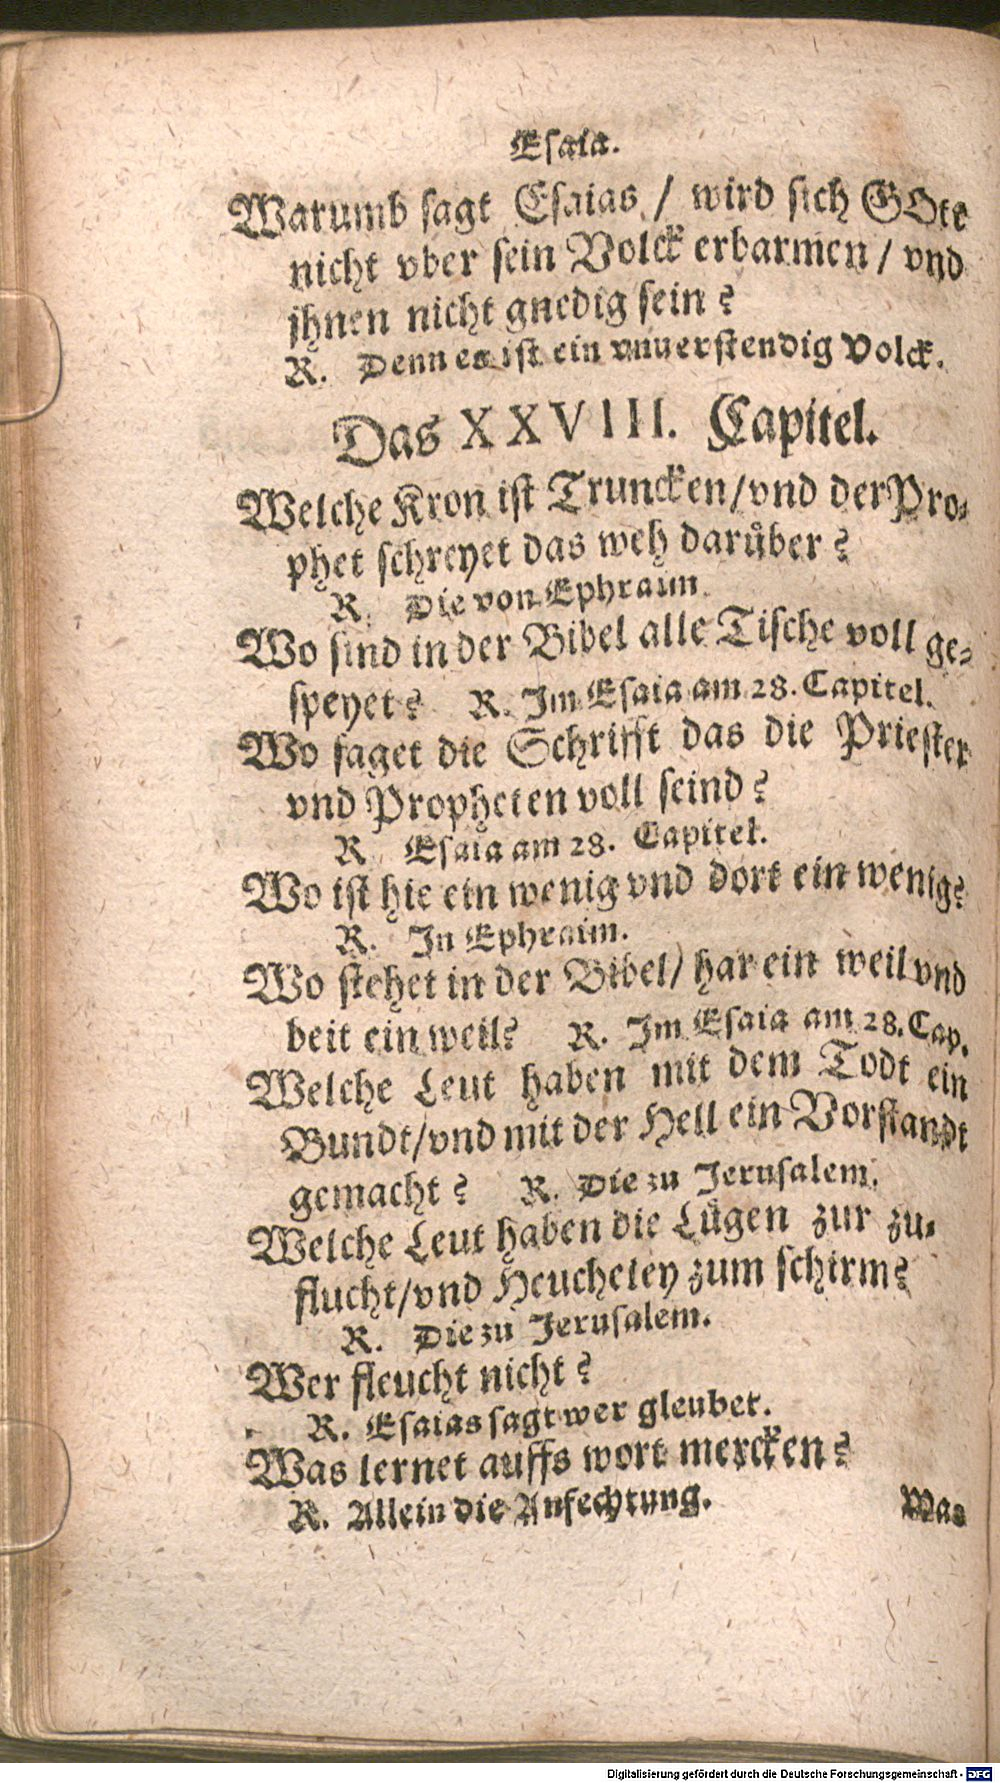 Esaia.
Warumb sagt Esaias / wird sich GOtt
nicht vber sein Volck erbarmen / vnd
jhnen nicht gnedig sein?
R. Denn es ist ein vnuerstendig Volck.
Das XXVIII. Capitel.
Welche Kron ist Truncken/vnd der Pro-
phet schreyet das weh darůber?
R. Die von Ephraim.
Wo sind in der Bibel alle Tische voll ge-
speyet? R. Im Esaia am 28. Capitel.
Wo saget die Schrifft das die Priester
vnd Propheten voll seind?
R. Esaia am 28. Capitel.
Wo ist hie ein wenig vnd dort ein wenig?
R. In Ephraim.
Wo stehet in der Bibel/ har ein weil vnd
beit ein weil? R. Im Esaia am 28. Cap.
Welche Leut haben mit dem Todt ein
Bundt/vnd mit der Hell ein Vorstandt
gemacht? R. Die zu Jerusalem.
Welche Leut haben die Lůgen zur zu-
flucht/vnd Heucheley zum schirm?
R. Die zu Jerusalem.
Wer fleucht nicht?
R. Esaias sagt wer gleubet.
Was lernet auffs wort mercken?
R. Allein die Anfechtung.
Was
Digitalisierung gefördert durch die Deutsche Forschungsgemeinschaft - DFG